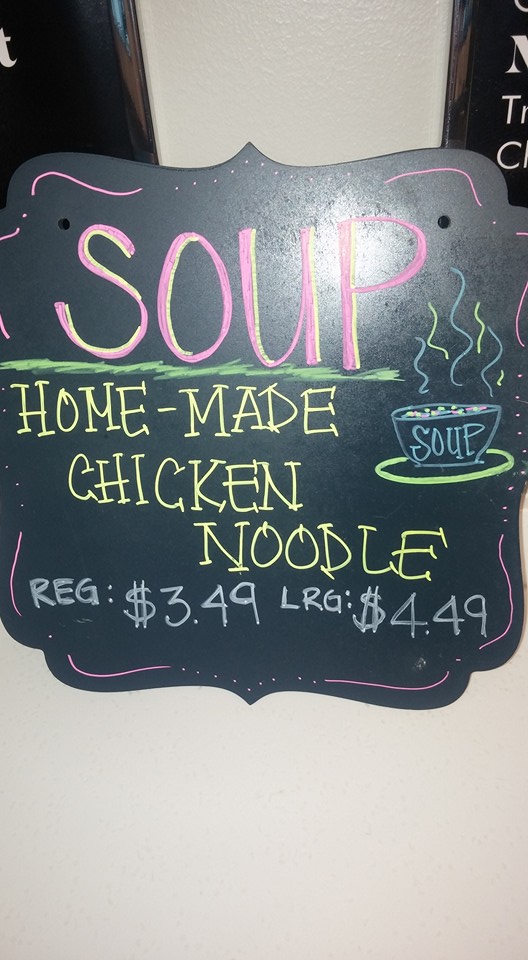 SOUP
HOME-MADE
CHICKEN
NOODLE
SOUP
REG: $3.49 LRG: $4.49